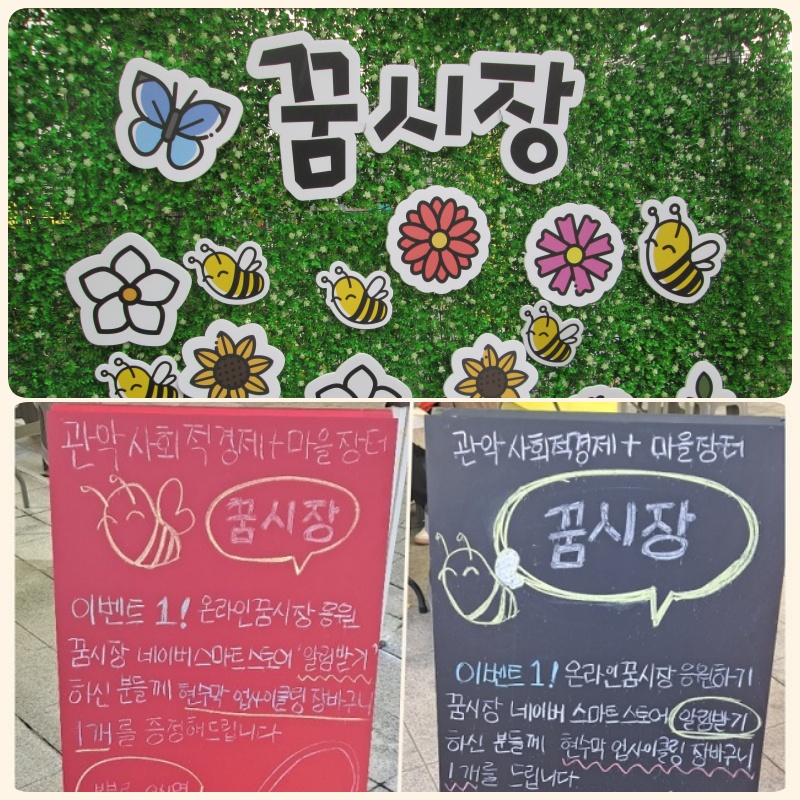 꿈시장
관악사회적경제+마을장터
꿈시장
이벤트 1! 온라인꿈시장 응원
꿈시장 네이버스마트스토어 '알림받기'
하신 분들께 현수막 업사이클링 장바구니
1개를 증정해드립니다
관악사회적경제+ 마을장터
꿈시장
이벤트 1! 온라인꿈시장 응원하기
꿈시장 네이버 스마트스토어 알림받기
하신 분들께 현수막 업사이클링 장바구니
1개를 드립니다